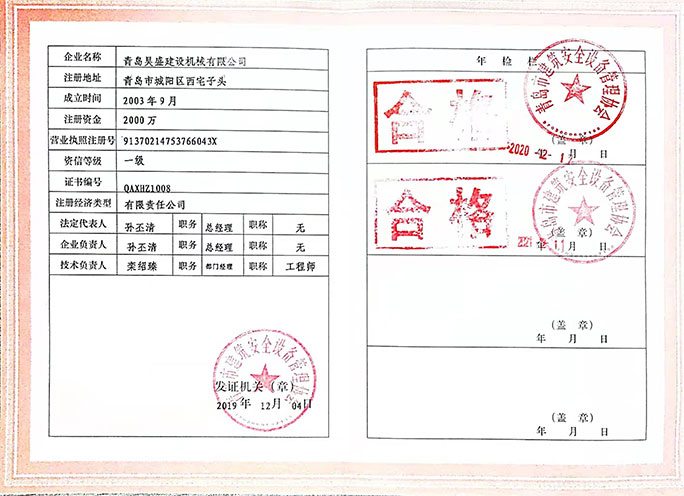 企业名称 青岛昊盛建设机械有限公司
注册地址 青岛市城阳区西宅子头
成立时间 2003 年 9 月
注册资金 2000 万
营业执照注册号 91370214753766043X
资信等级 一级
证书编号 QAXHZ1008
注册经济类型 有限责任公司
法定代表人 孙丕清 职务 总经理 职称 无
企业负责人 孙丕清 职务 总经理 职称 无
技术负责人 栾绍臻 职务 部门经理 职称 工程师
青岛市建筑安全设备管理协会
发证机关（章）
2019 年 12 月 04 日
年 检 栏
青岛市建筑安全设备管理协会
合格
2020 -12- 1
青岛市建筑安全设备管理协会
合格
（盖 章）
年 月 日
（盖 章）
年 月 日
（盖 章）
年 月 日